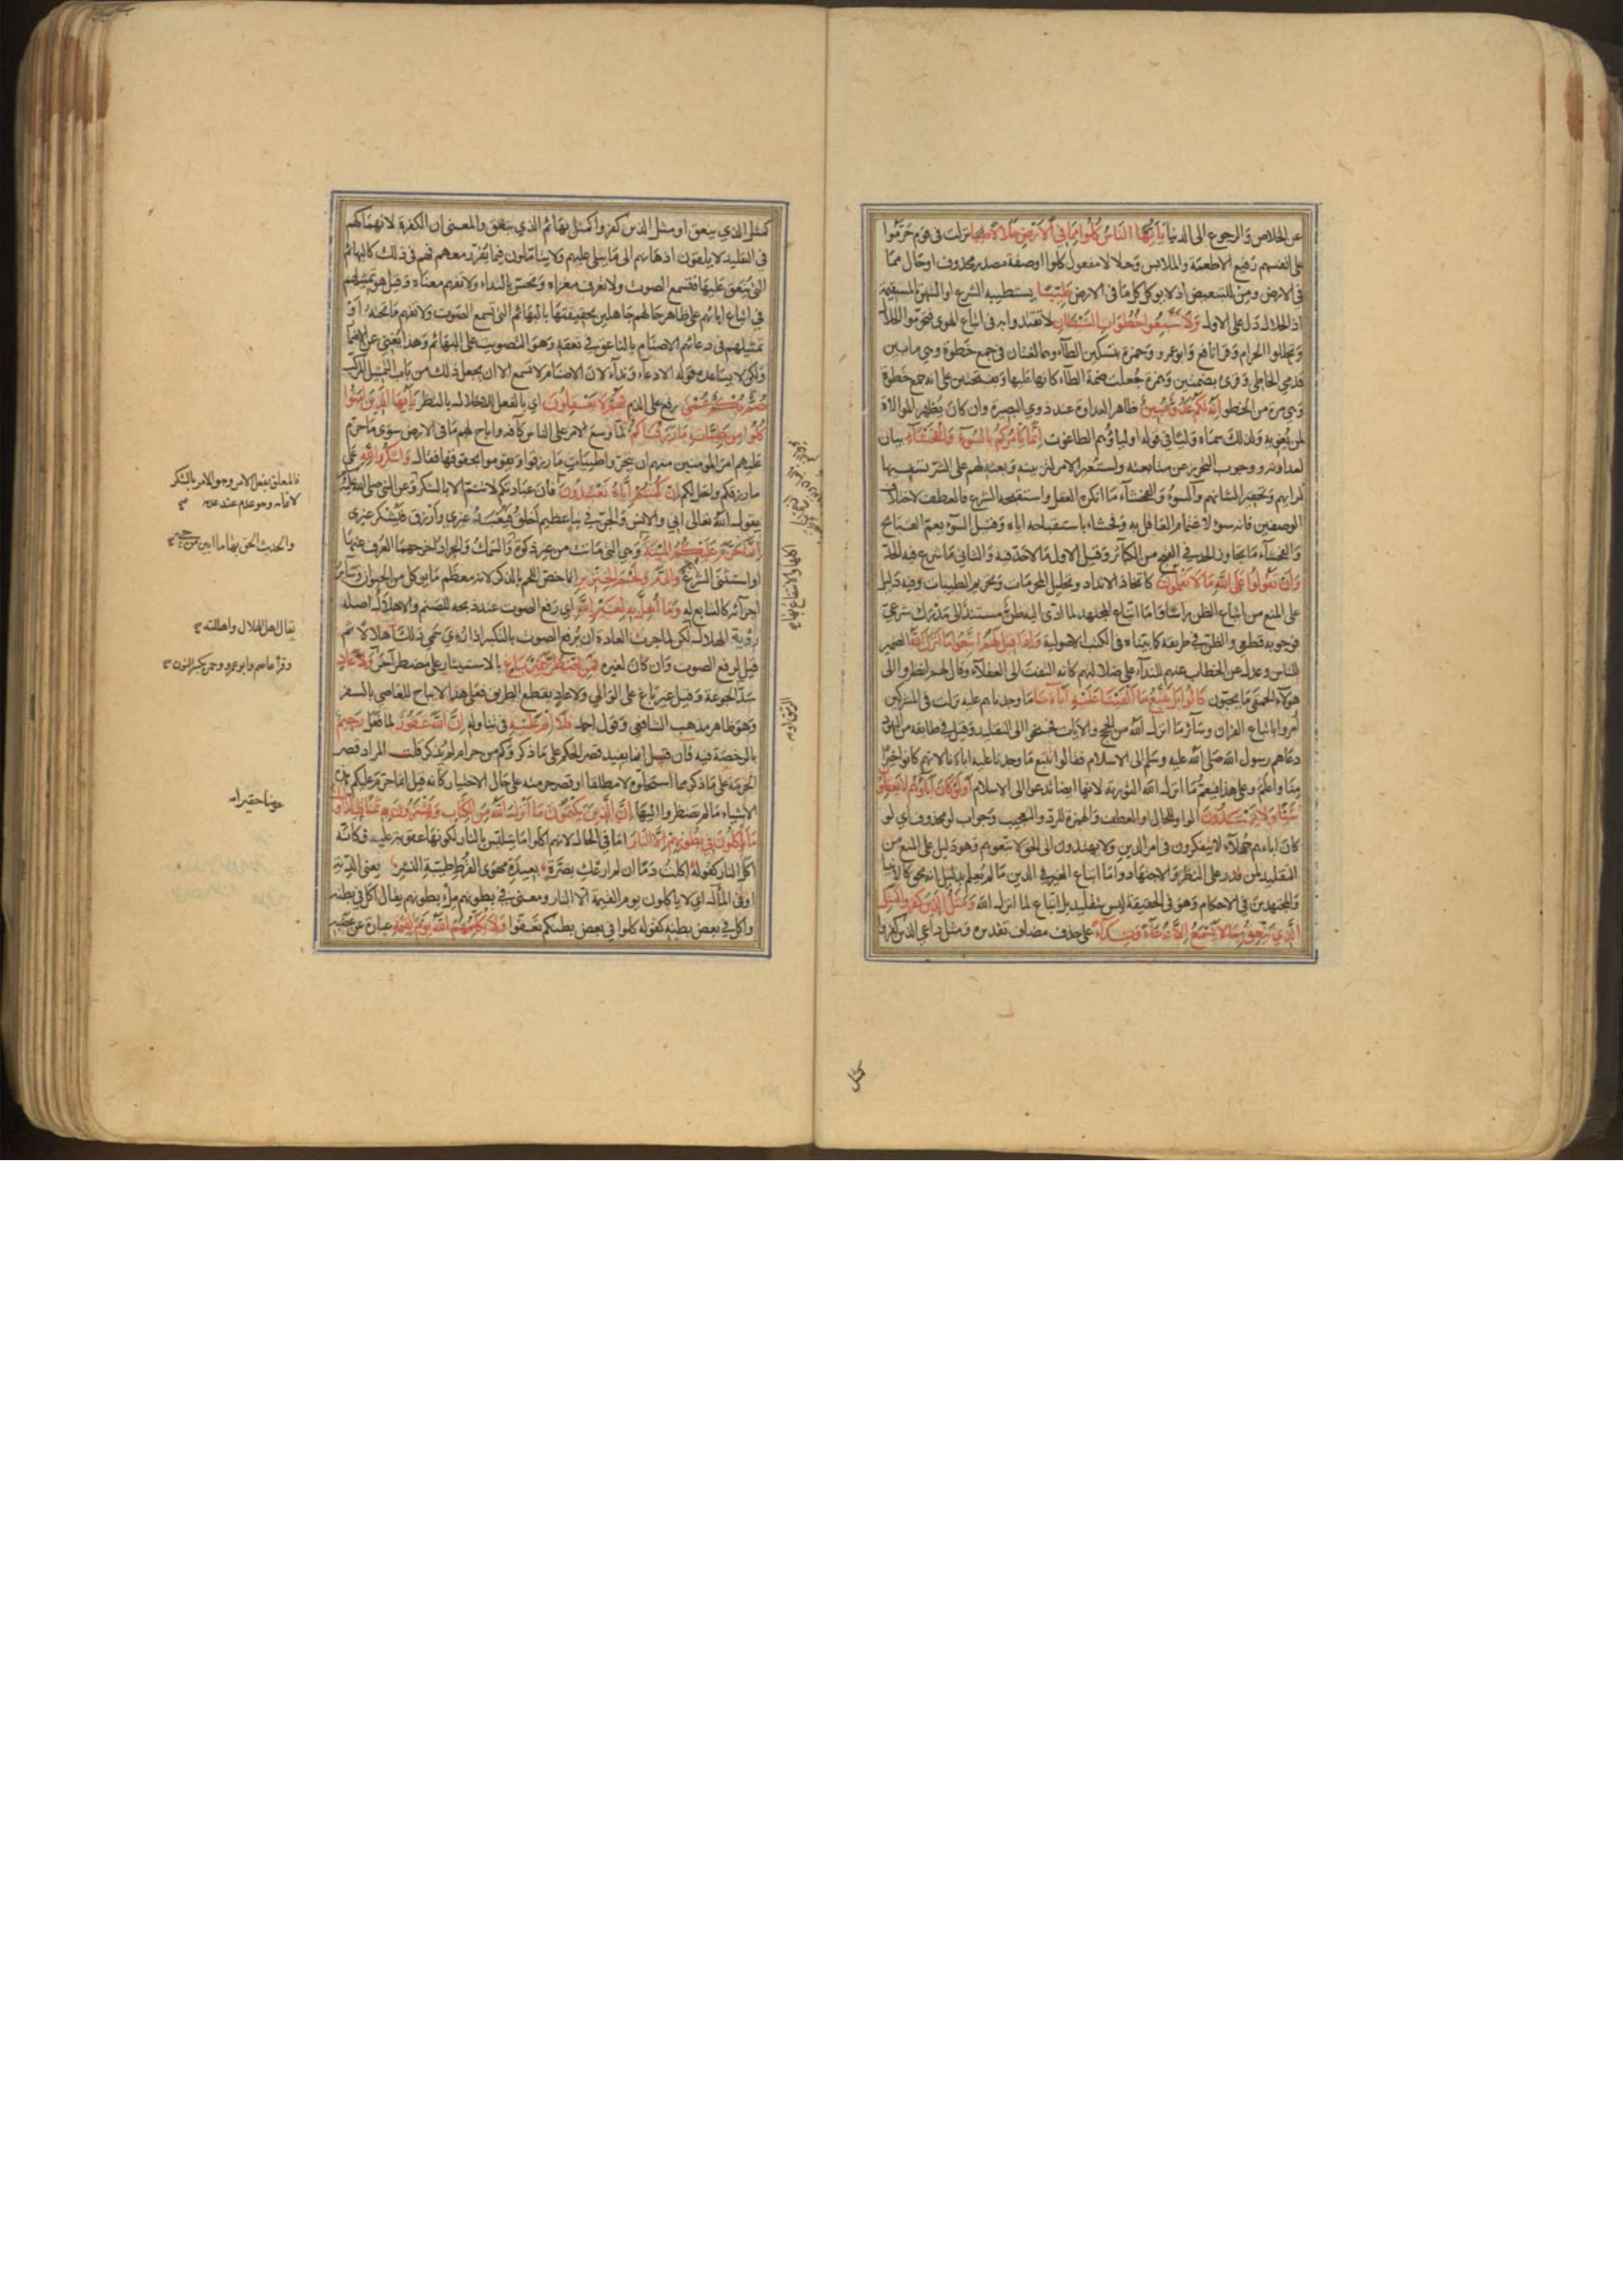 عن الخلاص والرجوع الى الدنيا يَا أَيُّهَا النَّاسُ كُلُوا مِمَّا فِي الْأَرْضِ حَلَالًا نزلت فى قوم حرموا
على انفسهم رفيع الاطعمة والملابس وحلالا مفعول كلوا او صفة مصدر محذوف او حال مما
فى الارض ومن للتبعيض اذ لا يوكل كل ما فى الارض طَيِّبًا يستطيبه الشرع او الشهوة المستقيمة
اذ الحلال دل على الاول وَلَا تَتَّبِعُوا خُطُوَاتِ الشَّيْطَانِ لا تقتدوا به فى اتباع الهوى فتحرموا الحلال
وتحللوا الحرام وقرا نافع وابوعمرو وحمزة بتسكين الطاء وهما لغتان فى جمع خطوة وهى ما بين
قدمي الخاطى وقرئ بضمتين وهمزة جعلت ضمة الطاء كانها عليها وبفتحتين على انه جمع خطوة
وهى مرة من الخطو إِنَّهُ لَكُمْ عَدُوٌّ مُبِينٌ ظاهر العداوة عند ذوي البصيرة وان كان يظهر الموالاة
لمن يغويه ولذلك سماه وليا فى قوله اولياؤهم الطاغوت إِنَّمَا يَأْمُرُكُمْ بِالسُّوءِ وَالْفَحْشَاءِ بيان
لعداوته ووجوب التحرز عن متابعته واستعير الامر لتزيينه وبعثه لهم على الشر تسفيها
لرايهم وتحقيرا لشانهم والسوء والفحشاء ما انكره العقل واستقبحه الشرع فالعطف لاختلاف
الوصفين فانه سوء لاغتمام العاقل به وفحشاء باستقباحه اياه وقيل السوء يعم القبايح
والفحشاء ما يجاوز الحد فى القبح من الكبائر وقيل الاول ما لا حد فيه والثانى ما شرع فيه الحد
وَأَنْ تَقُولُوا عَلَى اللَّهِ مَا لَا تَعْلَمُونَ كاتخاذ الانداد وتحليل المحرمات وتحريم الطيبات وفيه دليل
على المنع من اتباع الظن راسا واما اتباع المجتهد لما ادى اليه ظن مستند الى مدرك شرعي
فوجوبه قطعي والظن فى طريقه كما بيناه فى الكتب الاصولية وَإِذَا قِيلَ لَهُمُ اتَّبِعُوا مَا أَنْزَلَ اللَّهُ الضمير
للناس وعدل عن الخطاب عنهم للنداء على ضلالتهم كانه التفت الى العقلاء وقال لهم انظروا الى
هؤلاء الحمقى ما يجيبون قَالُوا بَلْ نَتَّبِعُ مَا أَلْفَيْنَا عَلَيْهِ آبَاءَنَا ما وجدناهم عليه نزلت فى المشركين
امروا باتباع القران وسائر ما انزل الله من الحجج والايات فجنحوا الى التقليد وقيل فى طايفة من اليهود
دعاهم رسول الله صلى الله عليه وسلم الى الاسلام فقالوا نتبع ما وجدنا عليه اباءنا لانهم كانوا خيرا
منا واعلم وعلى هذا فيعم ما انزل الله التورية لانها ايضا تدعوا الى الاسلام أَوَلَوْ كَانَ آبَاؤُهُمْ لَا يَعْقِلُونَ
شَيْئًا وَلَا يَهْتَدُونَ الواو للحال او العطف والهمزة للرد والتعجيب وجواب لو محذوف اي لو
كان اباءهم جهلاء لا يتفكرون فى امر الدين ولا يهتدون الى الحق لاتبعوهم وهو دليل على المنع من
التقليد لمن قدر على النظر والاجتهاد واما اتباع الغير فى الدين ما لم يعلم بدليل انه محق كالانبيا
والمجتهدين فى الاحكام وهو فى الحقيقة ليس بتقليد بل اتباع لما انزل الله وَمَثَلُ الَّذِينَ كَفَرُوا كَمَثَلِ
الَّذِي يَنْعِقُ بِمَا لَا يَسْمَعُ إِلَّا دُعَاءً وَنِدَاءً على حذف مضاف تقديره ومثل داعي الذين كفروا
كمثل
كمثل الذي ينعق او مثل الذين كفروا كمثل بهائم الذي ينعق والمعنى ان الكفرة لانهماكهم
فى التقليد لا يلقون اذهانهم الى ما يتلى عليهم ولا يتاملون فيما يقرر معهم فهم فى ذلك كالبهائم
التى ينعق عليها فتسمع الصوت ولا تعرف مغزاه وتحس بالنداء ولا تفهم معناه وقيل هو تمثيلهم
فى اتباع ابائهم على ظاهر حالهم جاهلين بحقيقتها بالبهائم التى تسمع الصوت ولا تفهم ما تحته او
تمثيلهم فى دعائهم الاصنام بالناعق فى نعقه وهو التصويت على البهائم وهذا يغنى عن الاضمار
ولكن لا يساعده قوله الا دعاء ونداء لان الاصنام لا تسمع الا ان يجعل ذلك من باب التمثيل المركب
صُمٌّ بُكْمٌ عُمْيٌ رفع على الذم فَهُمْ لَا يَعْقِلُونَ اي بالفعل للاخلال بالنظر يَا أَيُّهَا الَّذِينَ آمَنُوا
كُلُوا مِنْ طَيِّبَاتِ مَا رَزَقْنَاكُمْ لما وسع الامر على الناس كافة واباح لهم ما فى الارض سوى ما حرم
عليهم امر المؤمنين منهم ان يتحروا طيبات ما رزقوا ويقوموا بحقوقها فقال وَاشْكُرُوا لِلَّهِ على
ما رزقكم واحل لكم إِنْ كُنْتُمْ إِيَّاهُ تَعْبُدُونَ فان عبادتكم لا تتم الا بالشكر وعن النبى صلى الله عليه
يقول الله تعالى انى والانس والجن فى نبا عظيم اخلق ويعبد غيري وارزق ويشكر غيري
إِنَّمَا حَرَّمَ عَلَيْكُمُ الْمَيْتَةَ وهى التى ماتت من غير ذكوة والسمك والجراد اخرجهما العرف عنها
او استثنى الشرع وَالدَّمَ وَلَحْمَ الْخِنْزِيرِ انما خص اللحم بالذكر لانه معظم ما يوكل من الحيوان وسائر
اجزائه كالتابع له وَمَا أُهِلَّ بِهِ لِغَيْرِ اللَّهِ اي رفع الصوت عند ذبحه للصنم والاهلال اصله
رؤية الهلال لكن لما جرت العادة ان يرفع الصوت بالتكبير اذا رئى سمى ذلك اهلالا ثم
قيل لرفع الصوت وان كان لغيره فَمَنِ اضْطُرَّ غَيْرَ بَاغٍ بالاستيثار على مضطر آخر وَلَا عَادٍ
سد الجوعة وقيل غير باغ على الوالي ولا عاد بقطع الطريق فعلى هذا لا يباح للعاصي بالسفر
وهو ظاهر مذهب الشافعي وقول احمد فَلَا إِثْمَ عَلَيْهِ فى تناوله إِنَّ اللَّهَ غَفُورٌ لما فعل رَحِيمٌ
بالرخصة فيه فان قيل انما يفيد قصر الحكم على ما ذكر وكم من حرام لم يذكر قلت المراد قصر
الحرمة على ما ذكر مما استحلوه لا مطلقا او قصر حرمته على حال الاختيار كانه قيل انما حرم عليكم هذه
الاشياء ما لم تضطروا اليها إِنَّ الَّذِينَ يَكْتُمُونَ مَا أَنْزَلَ اللَّهُ مِنَ الْكِتَابِ وَيَشْتَرُونَ بِهِ ثَمَنًا قَلِيلًا أُولَئِكَ
مَا يَأْكُلُونَ فِي بُطُونِهِمْ إِلَّا النَّارَ اما فى الحال لانهم اكلوا ما يتلبس بالنار لكونها عقوبة عليه فكانه
اكل النار كقوله اكلت دما ان لم ارعك بضرة بعيدة مهوى القرط طيبة النشر يعنى الدية
او فى المآل اي لا ياكلون يوم القيمة الا النار ومعنى فى بطونهم ملء بطونهم يقال اكل فى بطنه
واكل فى بعض بطنه كقوله كلوا فى بعض بطنكم تعفوا وَلَا يُكَلِّمُهُمُ اللَّهُ يَوْمَ الْقِيمَةِ عبارة عن غضبه
فالمعلق بفعل الامر وهو الامر بالشكر
لاتمامه وهو عدم عند عدمه
يقال اهل الهلال واهللته
وقرأ عاصم وابو عمرو وحمزة بكسر النون